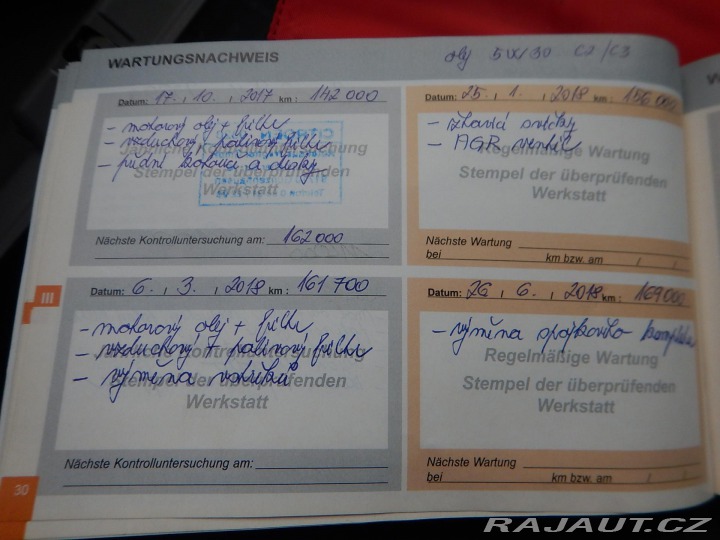 WARTUNGSNACHWEIS
olej 5W/30 C2/C3
Datum: 17. 10. 2017 km: 142 000
- motorový olej + filtr
- vzduchový, palinový filtr
- přední kotouče a desky
Stempel der überprüfenden
Werkstatt
Nächste Kontrolluntersuchung am: 162 000
Datum: 25. 1. 2018 km: 156 000
- žhavící svíčky
- AGR ventil
Regelmäßige Wartung
Stempel der überprüfenden
Werkstatt
Nächste Wartung
bei km bzw. am / /
III
Datum: 6. 3. 2018 km: 161 700
- motorový olej + filtr
- vzduchový + palinový filtr
- výměna vstřiků
Stempel der überprüfenden
Werkstatt
Nächste Kontrolluntersuchung am:
Datum: 26. 6. 2018 km: 169 000
- výměna spojkového kompletu
Regelmäßige Wartung
Stempel der überprüfenden
Werkstatt
Nächste Wartung
bei km bzw. am / /
30
RAJAUT.CZ